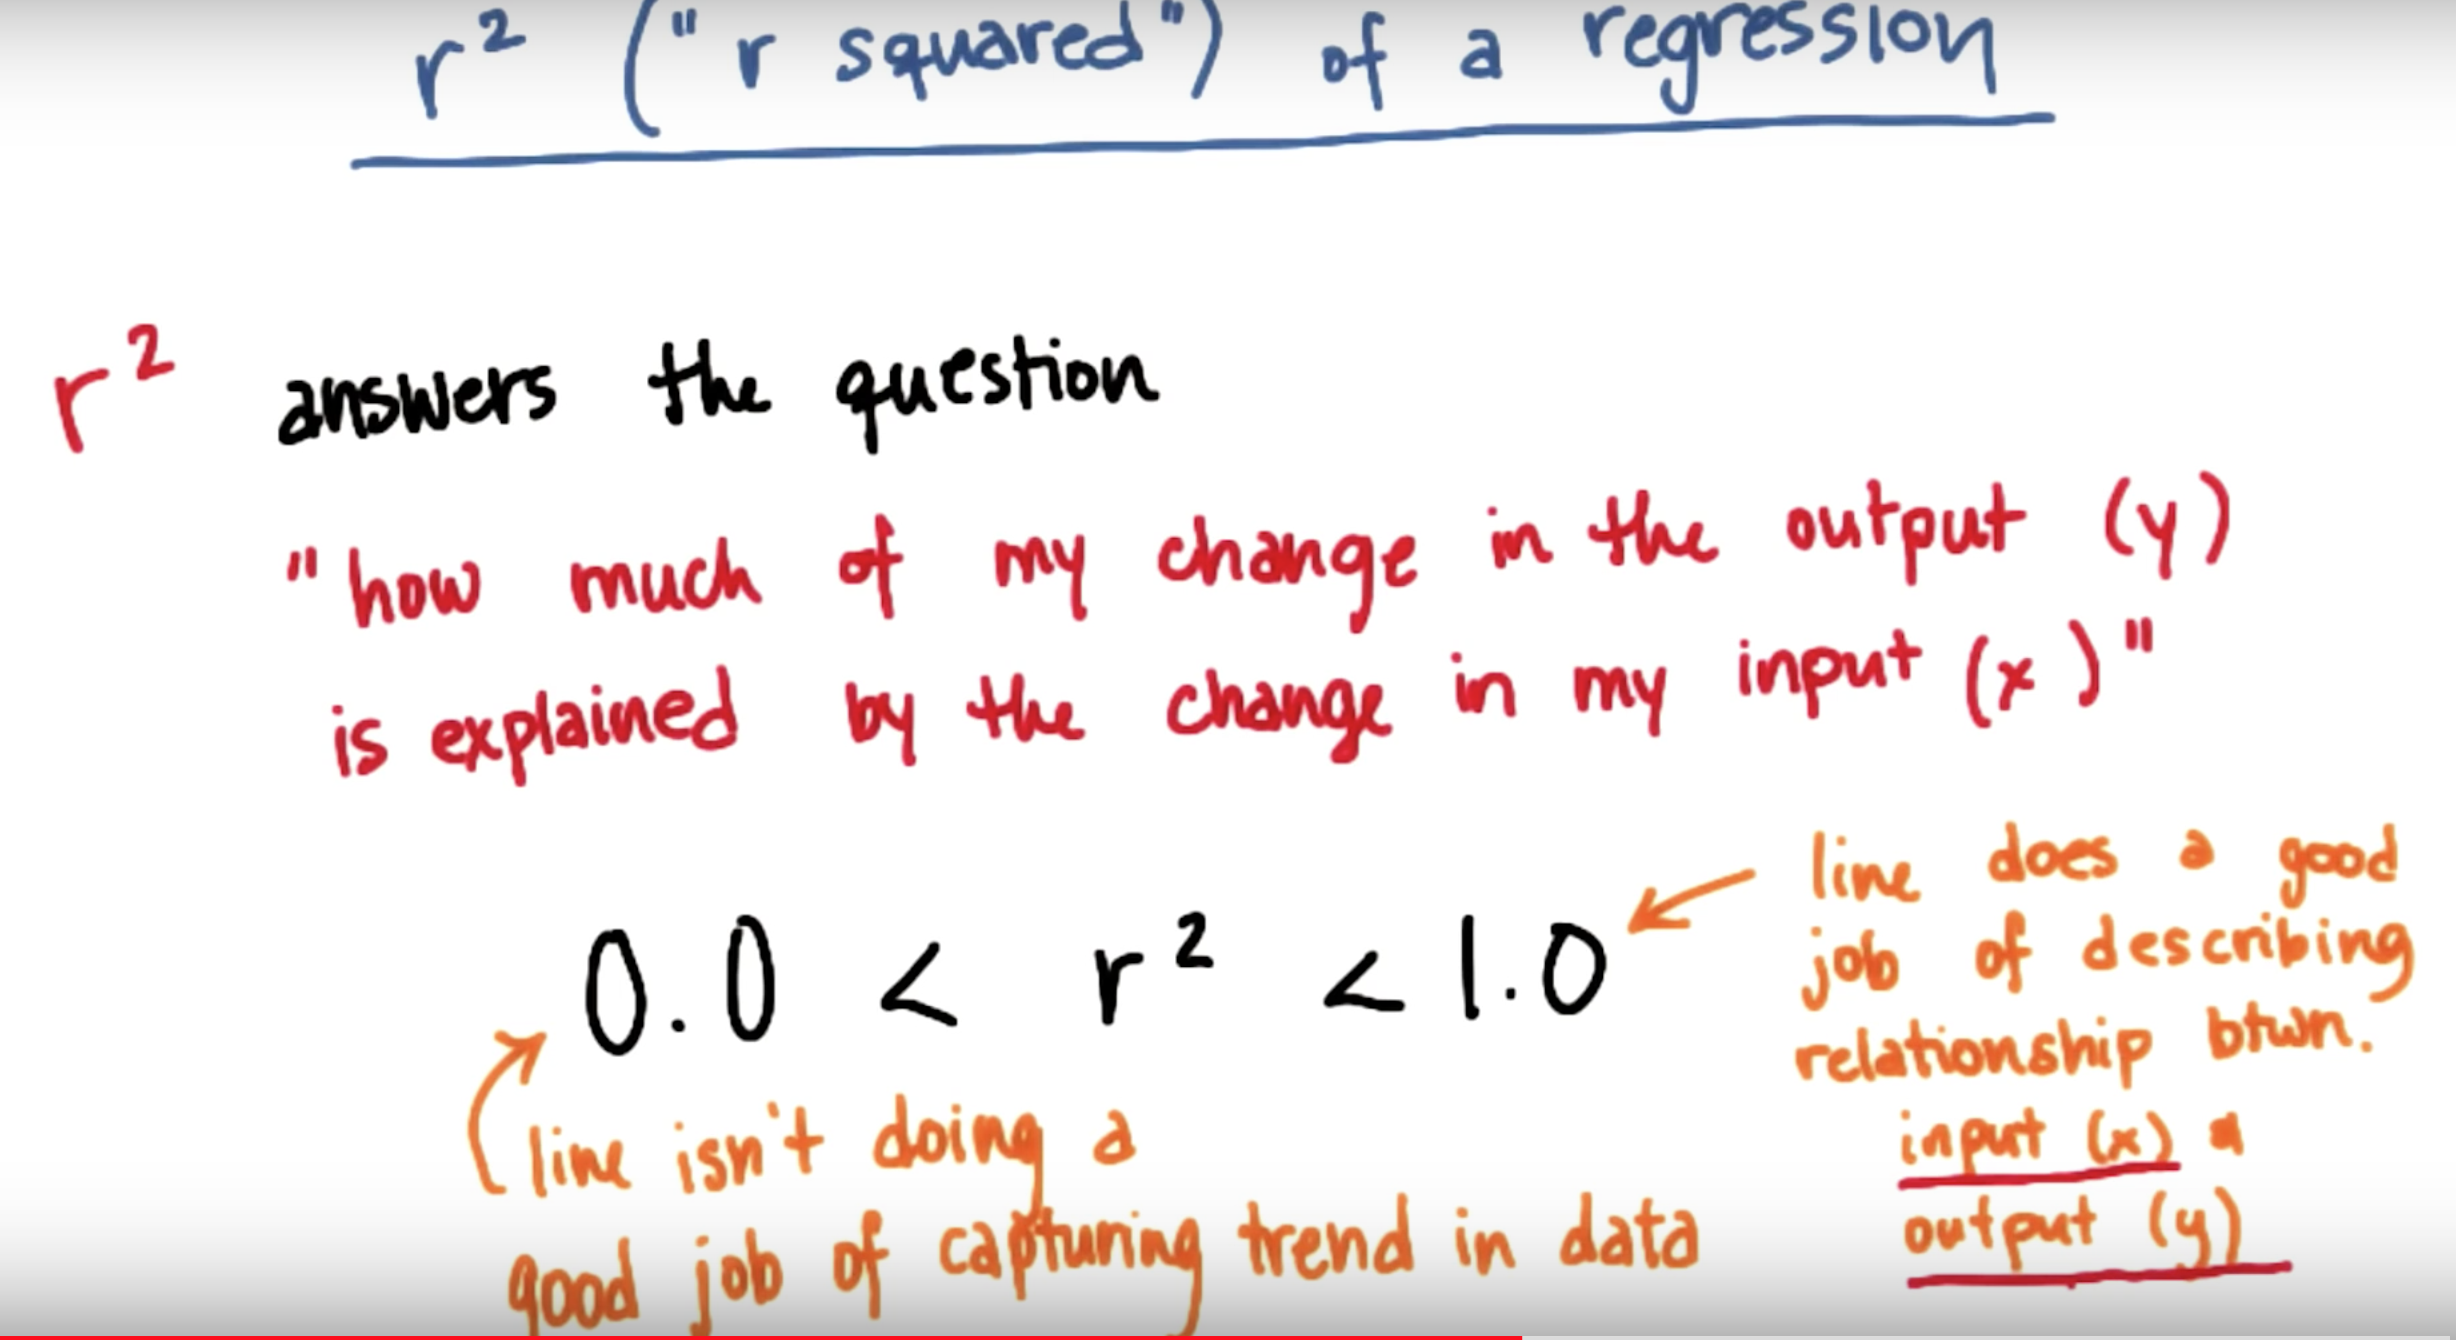 r² ("r squared") of a regression
r² answers the question
"how much of my change in the output (y)
is explained by the change in my input (x)"
0.0 < r² < 1.0
line does a good
job of describing
relationship btwn.
input (x) a
output (y)
line isn't doing a
good job of capturing trend in data